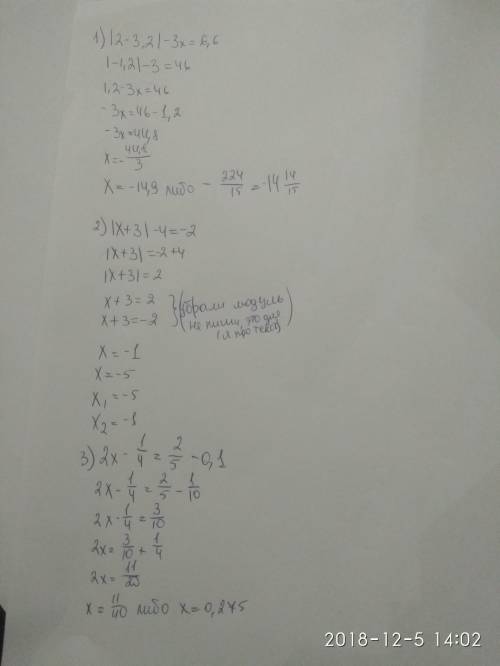 1) |2-3,2|-3x=6,6
|-1,2|-3=46
1,2-3x=46
-3x=46-1,2
-3x=44,8
x=-44,8/3
x=-14,9 либо -224/15=-14 14/15
2) |x+3|-4=-2
|x+3|=-2+4
|x+3|=2
x+3=2
x+3=-2
(убрали модуль
не пиши, это для
x=-1
x=-5
x₁=-5
x₂=-1
3) 2x-1/4=2/5-0,1
2x-1/4=2/5-1/10
2x-1/4=3/10
2x=3/10+1/4
2x=11/20
x=11/40 либо x=0,275
2018-12-5 14:02